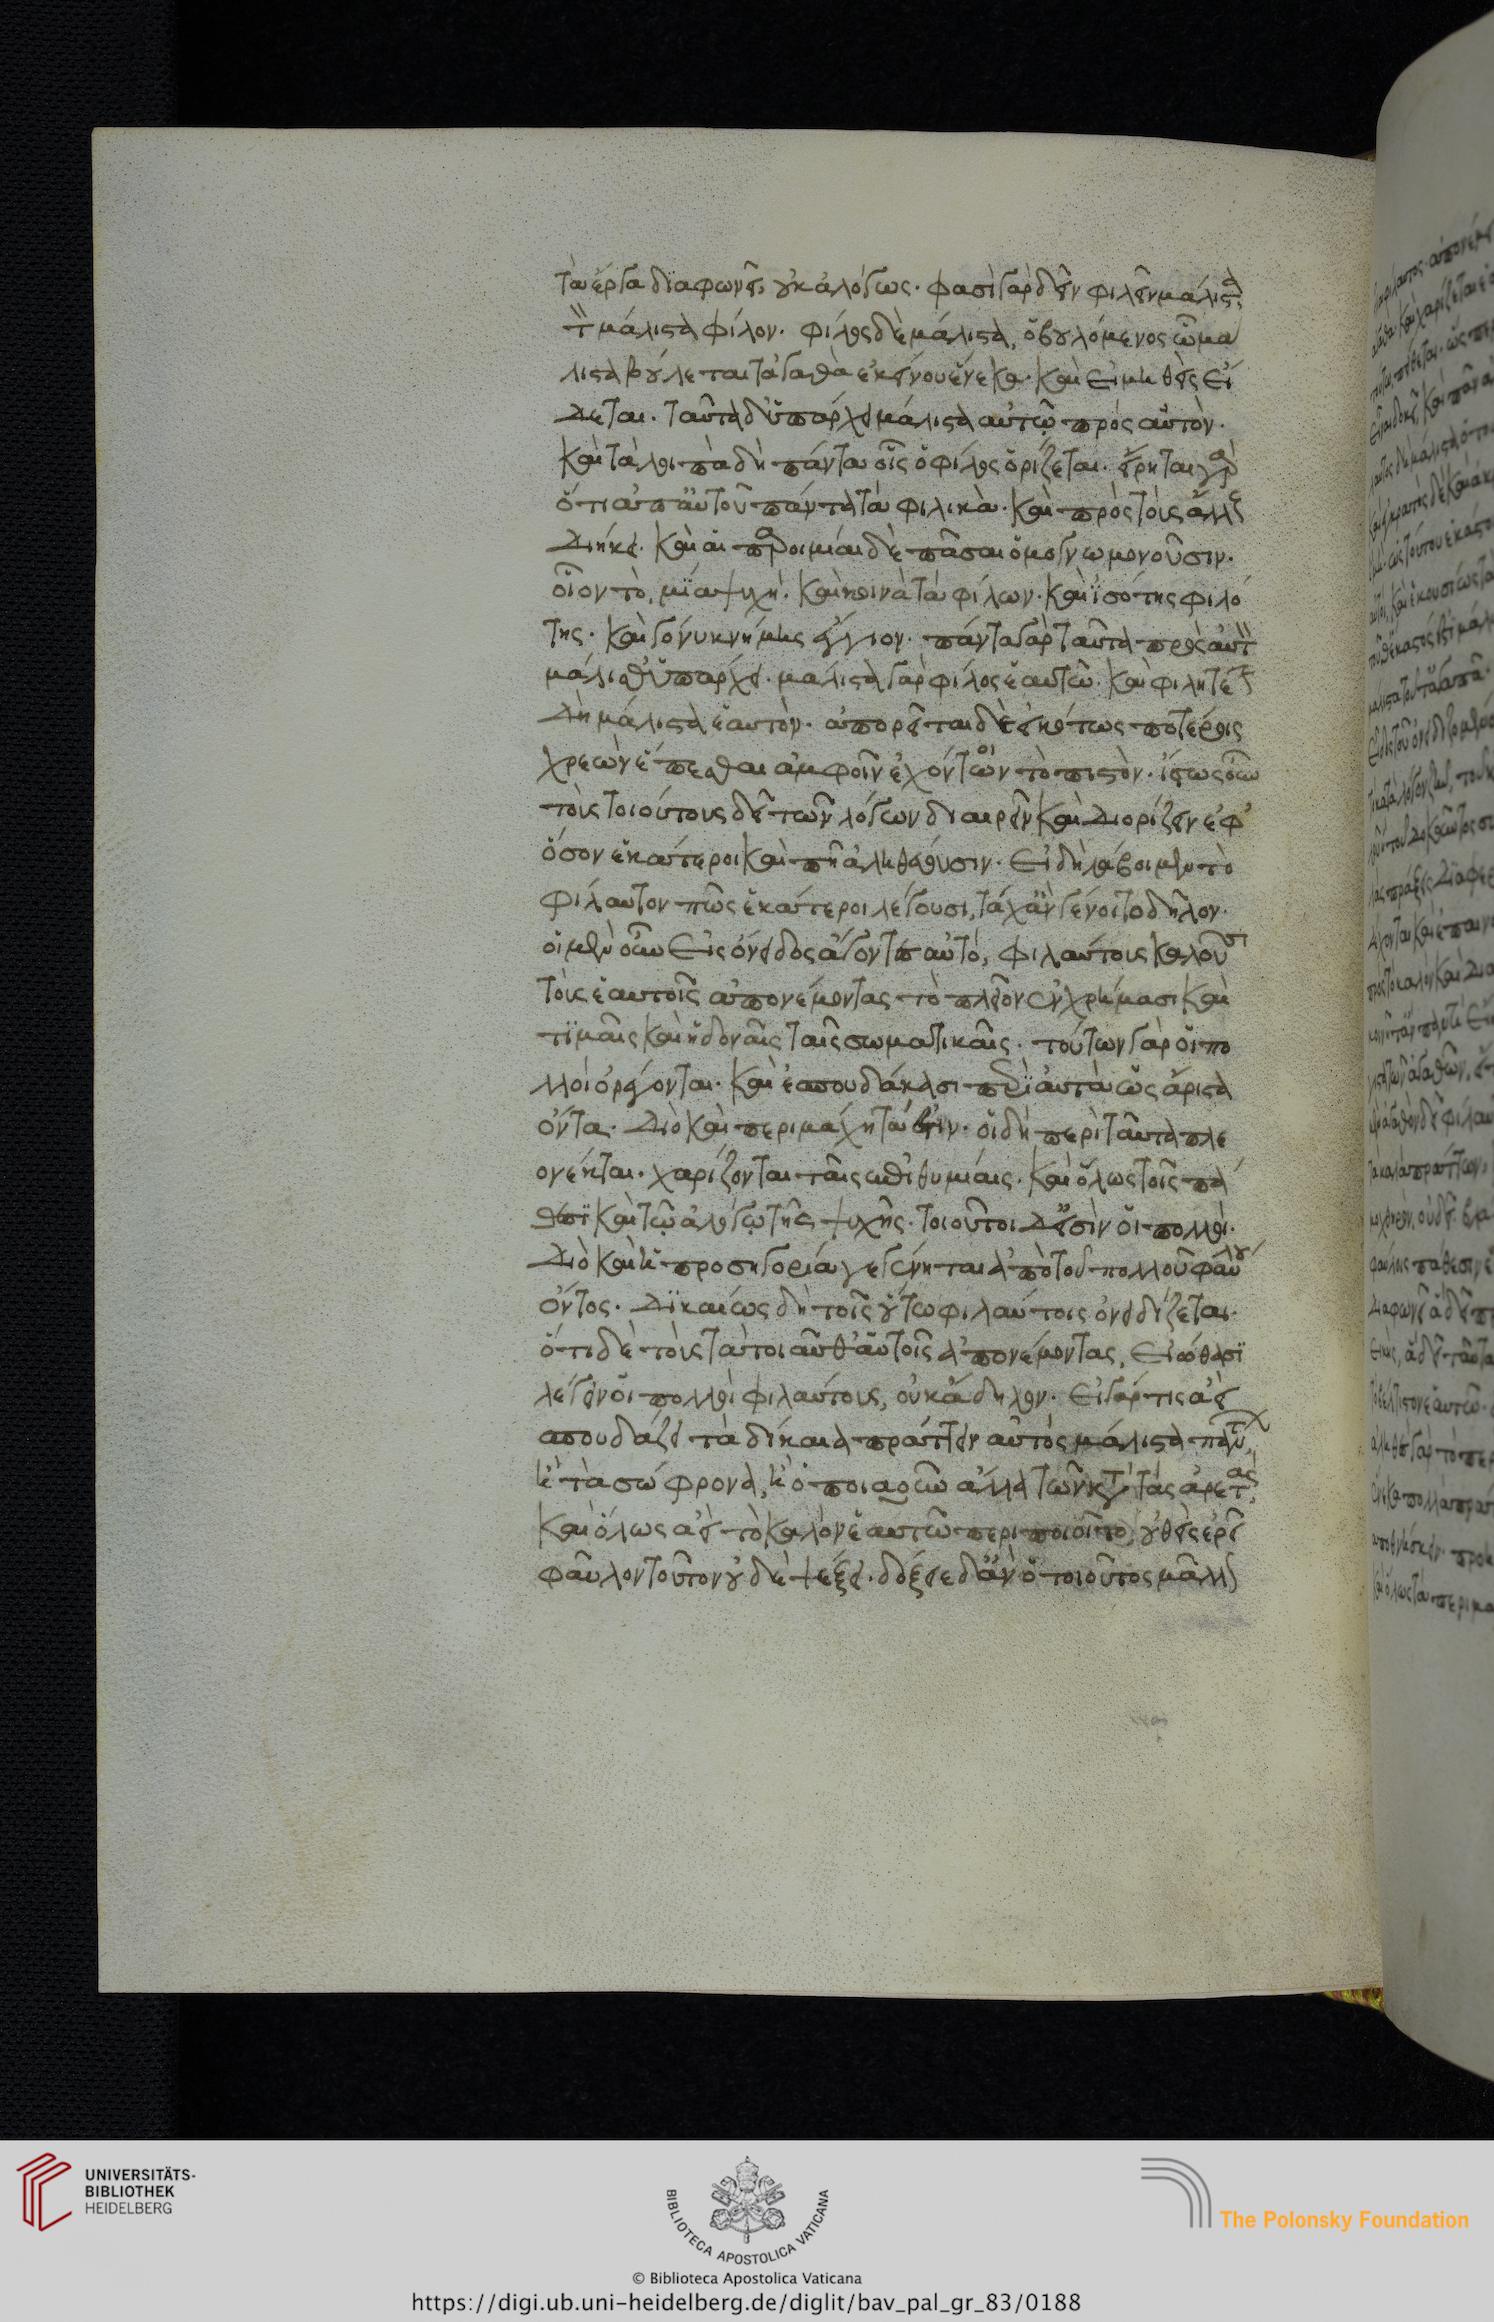 τὰ ἔργα διαφωνεῖ, οὐκ ἀλόγως. φασὶ γὰρ δεῖν φιλεῖν μάλιστα
τὸν μάλιστα φίλον. φίλος δὲ μάλιστα, ὁ βουλόμενος ὧ μά
λιστα βούλεται τἀγαθὰ ἐκείνου ἕνεκα. καὶ εἰ μηθεὶς εἴ
σεται. ταῦτα δ' ὑπάρχει μάλιστα αὐτῷ πρὸς αὑτὸν.
καὶ τὰ λοιπὰ δὴ πάντα οἷς ὁ φίλος ὁρίζεται. εἴρηται γὰρ
ὅτι ἀπ' αὑτοῦ πάντα τὰ φιλικὰ. καὶ πρὸς τοὺς ἄλλους
διήκει. καὶ αἱ παροιμίαι δὲ πᾶσαι ὁμογνωμονοῦσιν.
οἷον τὸ, μία ψυχή. καὶ κοινὰ τὰ φίλων. καὶ ἰσότης φιλό
της. καὶ γόνυ κνήμης ἔγγιον. πάντα γὰρ ταῦτα πρὸς αὑτὸν
μάλισθ' ὑπάρχει. μάλιστα γὰρ φίλος ἑαυτῶ. καὶ φιλητέον
δὴ μάλιστα ἑαυτὸν. ἀπορεῖται δὲ εἰκότως ποτέροις
χρεὼν ἕπεσθαι ἀμφοῖν ἐχόντοιν τὸ πιστὸν. ἴσως οὖν
τοὺς τοιούτους δεῖ τῶν λόγων διαιρεῖν καὶ διορίζειν ἐφ'
ὅσον ἑκάτεροι καὶ πῆ ἀληθεύουσιν. εἰ δὴ λάβοιμεν τὸ
φίλαυτον πῶς ἑκάτεροι λέγουσι, τάχ' ἂν γένοιτο δῆλον.
οἱ μὲν οὖν εἰς ὄνειδος ἄγοντες αὐτό, φιλαύτους καλοῦσι
τοὺς ἑαυτοῖς ἀπονέμοντας τὸ πλεῖον ἐν χρήμασι καὶ
τιμαῖς καὶ ἡδοναῖς ταῖς σωματικαῖς. τούτων γὰρ οἱ πο
λλοὶ ὀρέγονται. καὶ ἐσπουδάκασι περὶ αὐτὰ ὡς ἄριστα
ὄντα. διὸ καὶ περιμάχητά ἐστιν. οἱ δὴ περὶ ταῦτα πλε
ονέκται. χαρίζονται ταῖς ἐπιθυμίαις. καὶ ὅλως τοῖς πά
θεσι καὶ τῷ ἀλόγῳ τῆς ψυχῆς. τοιοῦτοι δ' εἰσὶν οἱ πολλοὶ.
διὸ καὶ ἡ προσηγορία γεγένηται ἀπὸ τοῦ πολλοῦ φαύλου
ὄντος. δικαίως δὴ τοῖς οὕτω φιλαύτοις ὀνειδίζεται.
ὅτι δὲ τοὺς τὰ τοιαῦθ' αὑτοῖς ἀπονέμοντας, εἰώθασι
λέγειν οἱ πολλοὶ φιλαύτους, οὐκ ἄδηλον. εἰ γάρ τις ἀεὶ
σπουδάζει τὰ δίκαια πράττειν αὐτὸς μάλιστα πάντων,
ἢ τὰ σώφρονα, ἢ ὁποιαοῦν ἄλλα τῶν κατὰ τὰς ἀρετάς,
καὶ ὅλως ἀεὶ τὸ καλὸν ἑαυτῶ περιποιοῖτο, οὐθεὶς ἐρεῖ
φαῦλον τοῦτον οὐδὲ ψέξει. δόξειε δ' ἂν ὁ τοιοῦτος μᾶλλον
UNIVERSITÄTS-
BIBLIOTHEK
HEIDELBERG
BIBLIOTECA APOSTOLICA VATICANA
The Polonsky Foundation
© Biblioteca Apostolica Vaticana
https://digi.ub.uni-heidelberg.de/diglit/bav_pal_gr_83/0188